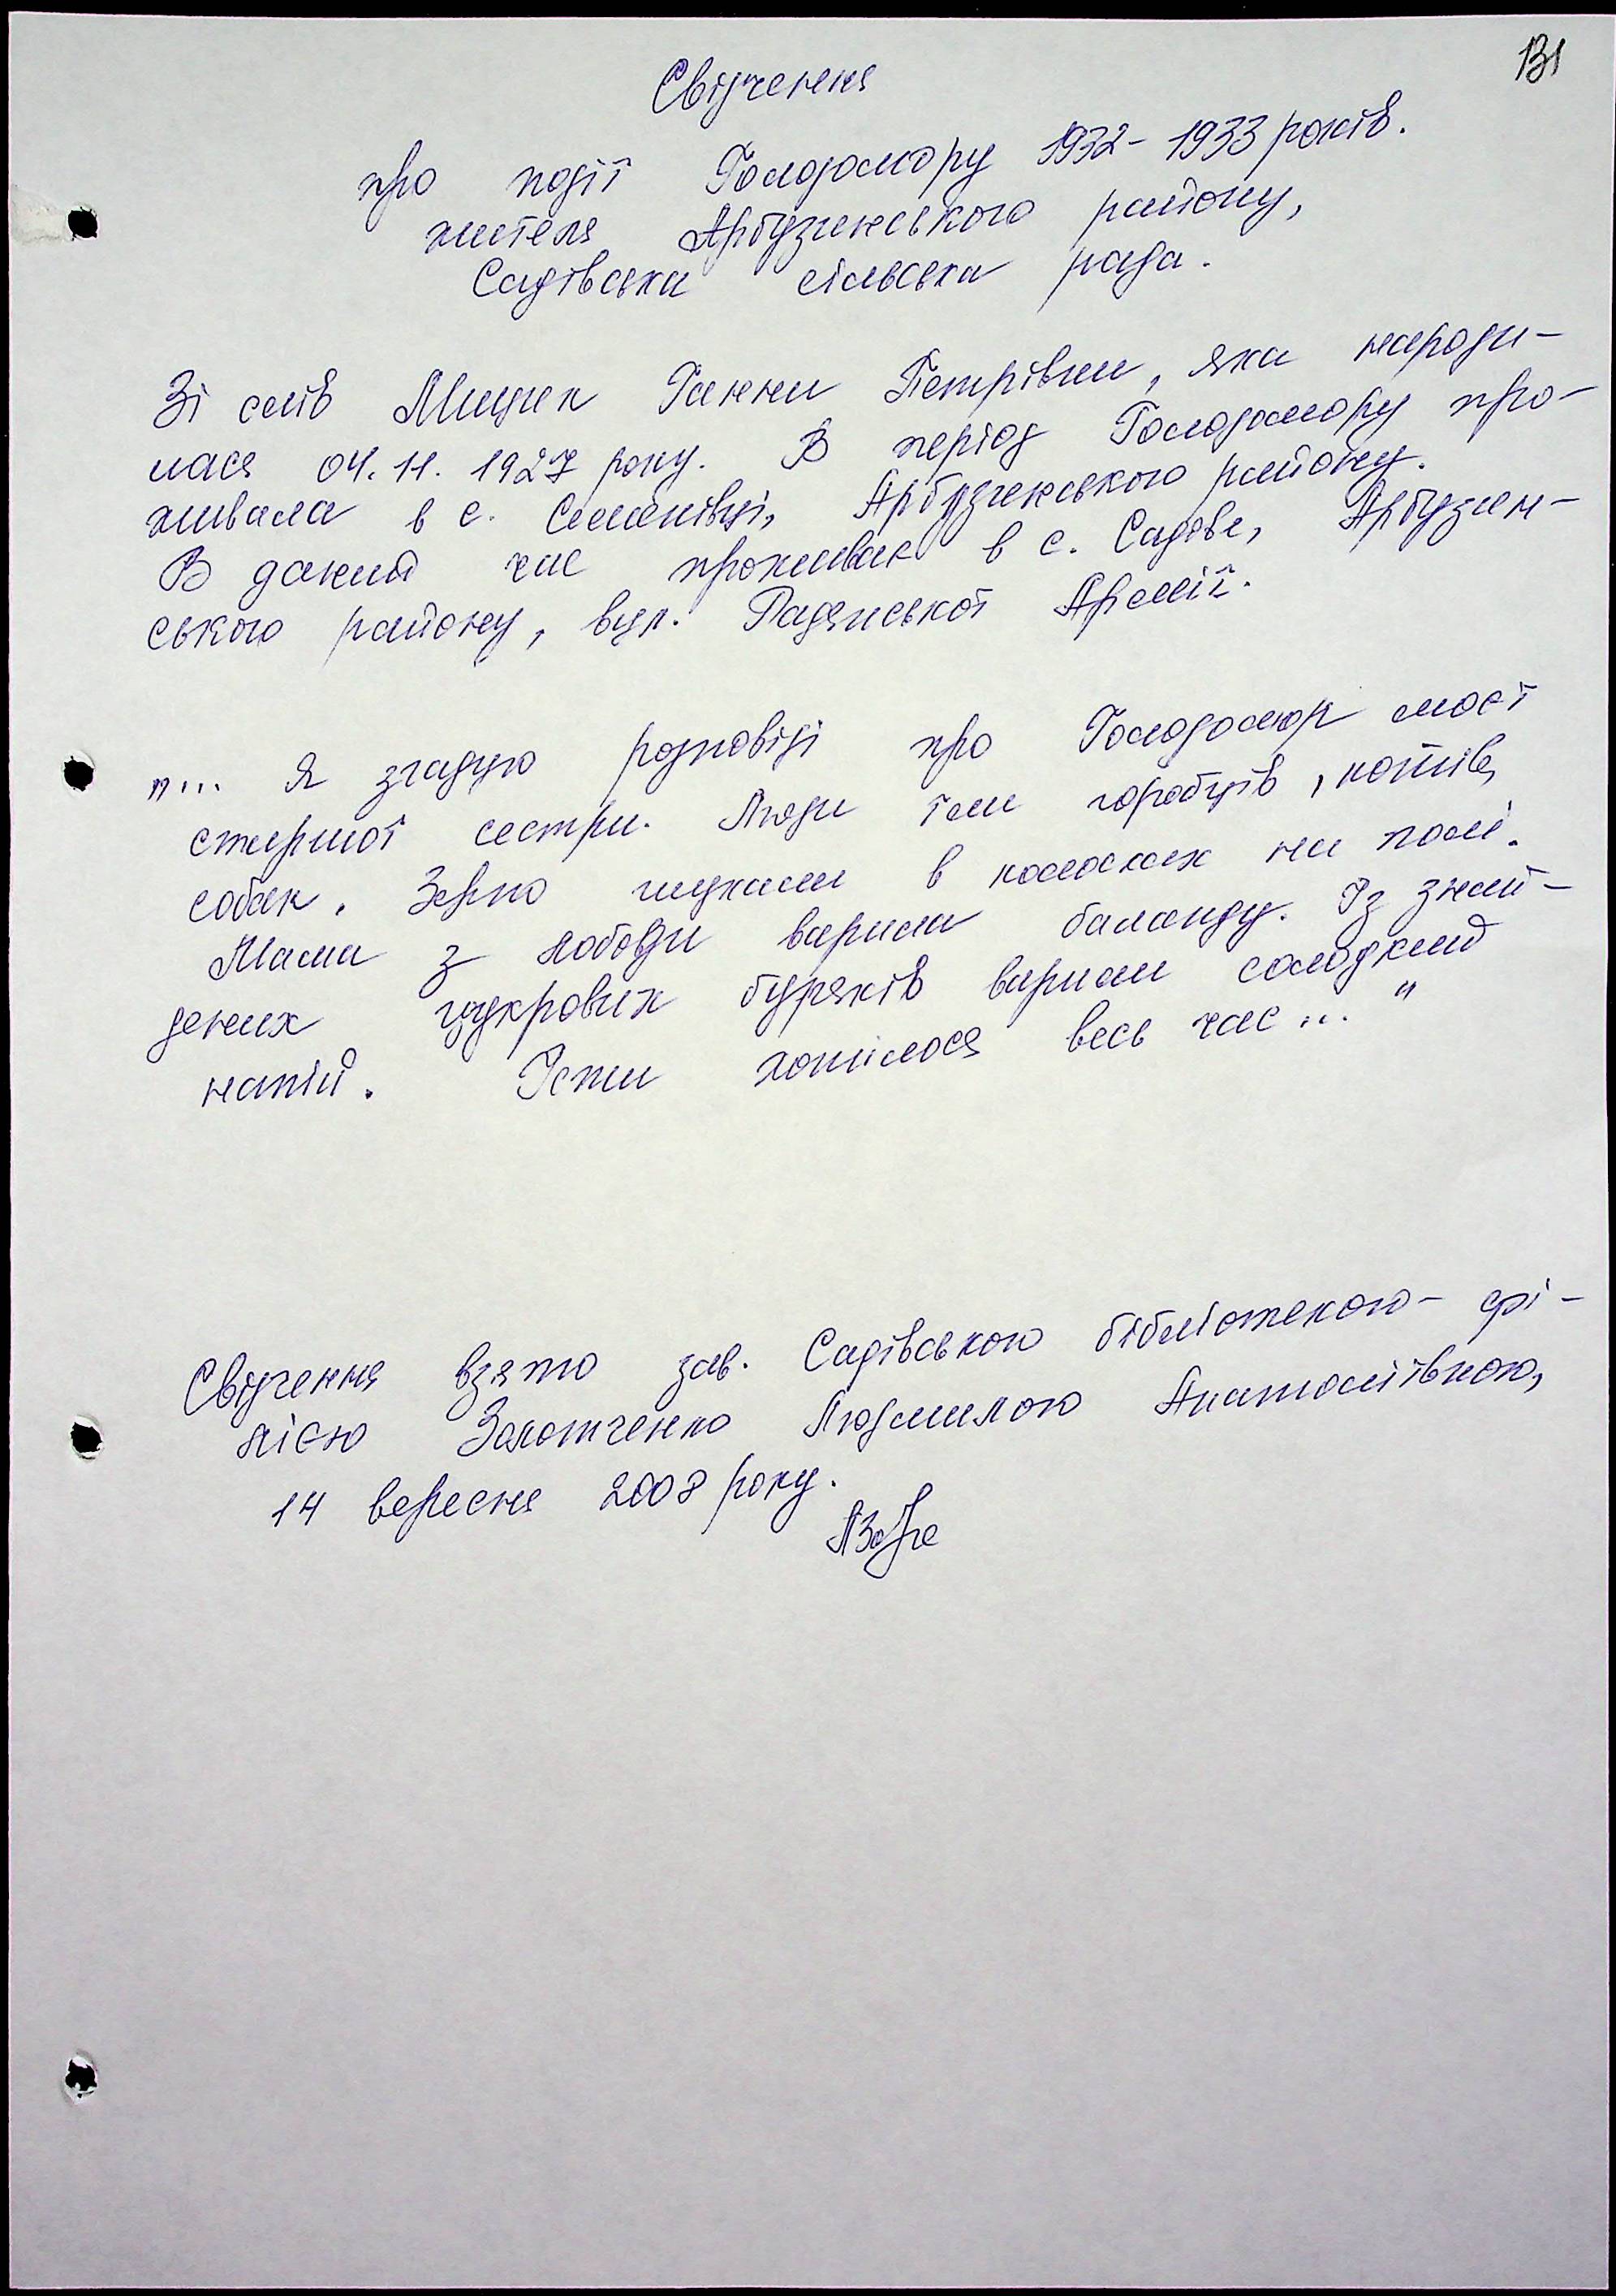 131
Свідчення
про події Голодомору 1932-1933 років.
жителя Арбузинського району,
Садівська сільська рада.
Зі слів Мицик Ганни Петрівни, яка народи-
лася 04.11.1927 року. В період Голодомору про-
живала в с. Семенівці, Арбузинського району.
В даний час проживає в с. Садове, Арбузин-
ського району, вул. Радянської Армії.
"... Я згадую розповіді про Голодомор моєї
старшої сестри. Люди їли горобців, котів,
собак. Зерно шукали в колосках на полі.
Мама з лободи варила баланду. Із знай-
дених цукрових буряків варили солодкий
напій. Їсти хотілося весь час..."
Свідчення взято зав. Садівською бібліотекою-фі-
лією Золотченко Людмилою Анатоліївною,
14 вересня 2008 року.